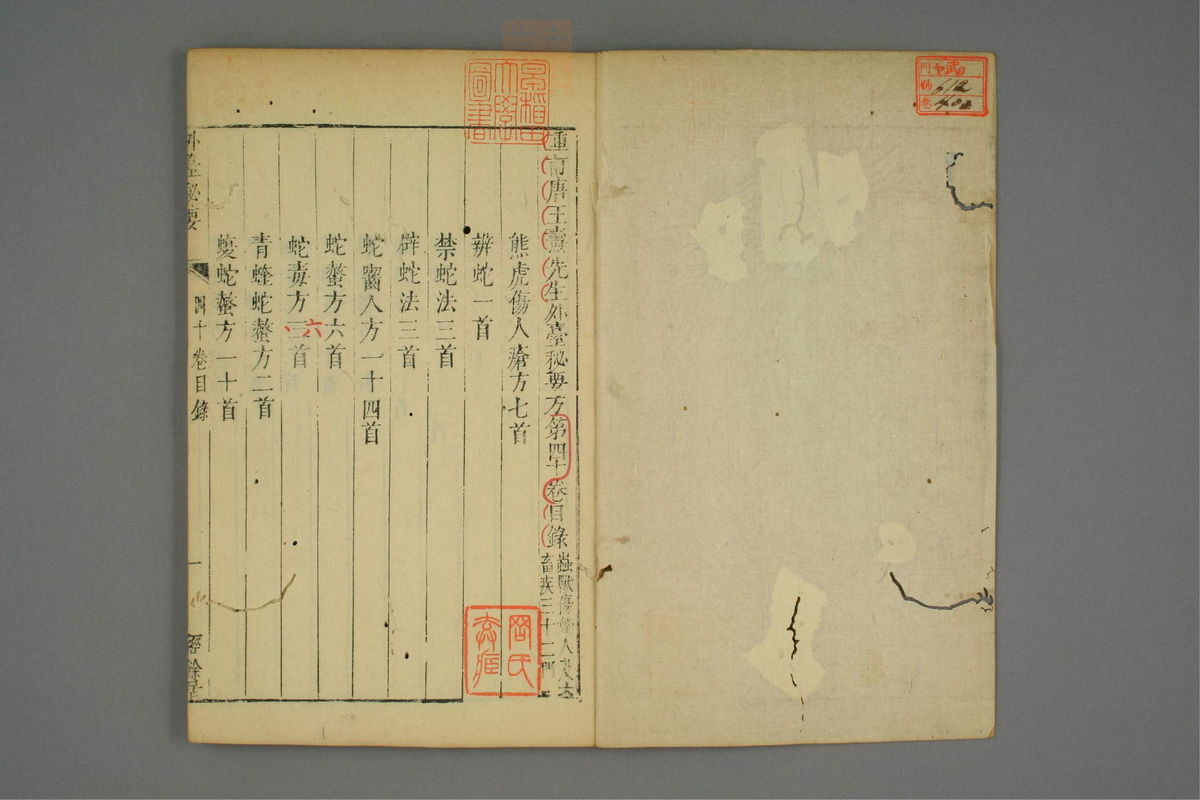 重訂唐王燾先生外臺秘要方第四十卷目錄
蟲獸傷觸人
畜疾三十二門
熊虎傷人瘡方七首
辨蛇一首
禁蛇法三首
辟蛇法三首
蛇嚙人方一十四首
蛇螫方六首
蛇毒方三首
六
青蝰蛇螫方二首
蝮蛇螫方一十首
外臺秘要
四十卷目錄
一
經餘居
早稲田
大學
圖書
門
號 112
卷 402